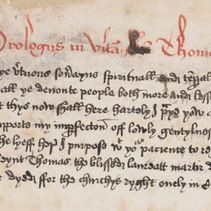 Prologus in Vita Thom
ye vtuous souayns spirituall and tepall
all ye deuoute people both more and less
t thys now shall here hartely I pray yow
pports my impfeccon off lowly gentylnes
he lyeff hop I purpose yor pacience to re
eynt Thomas the blessed laureatt martir
e dyed for the churchys ryght only in